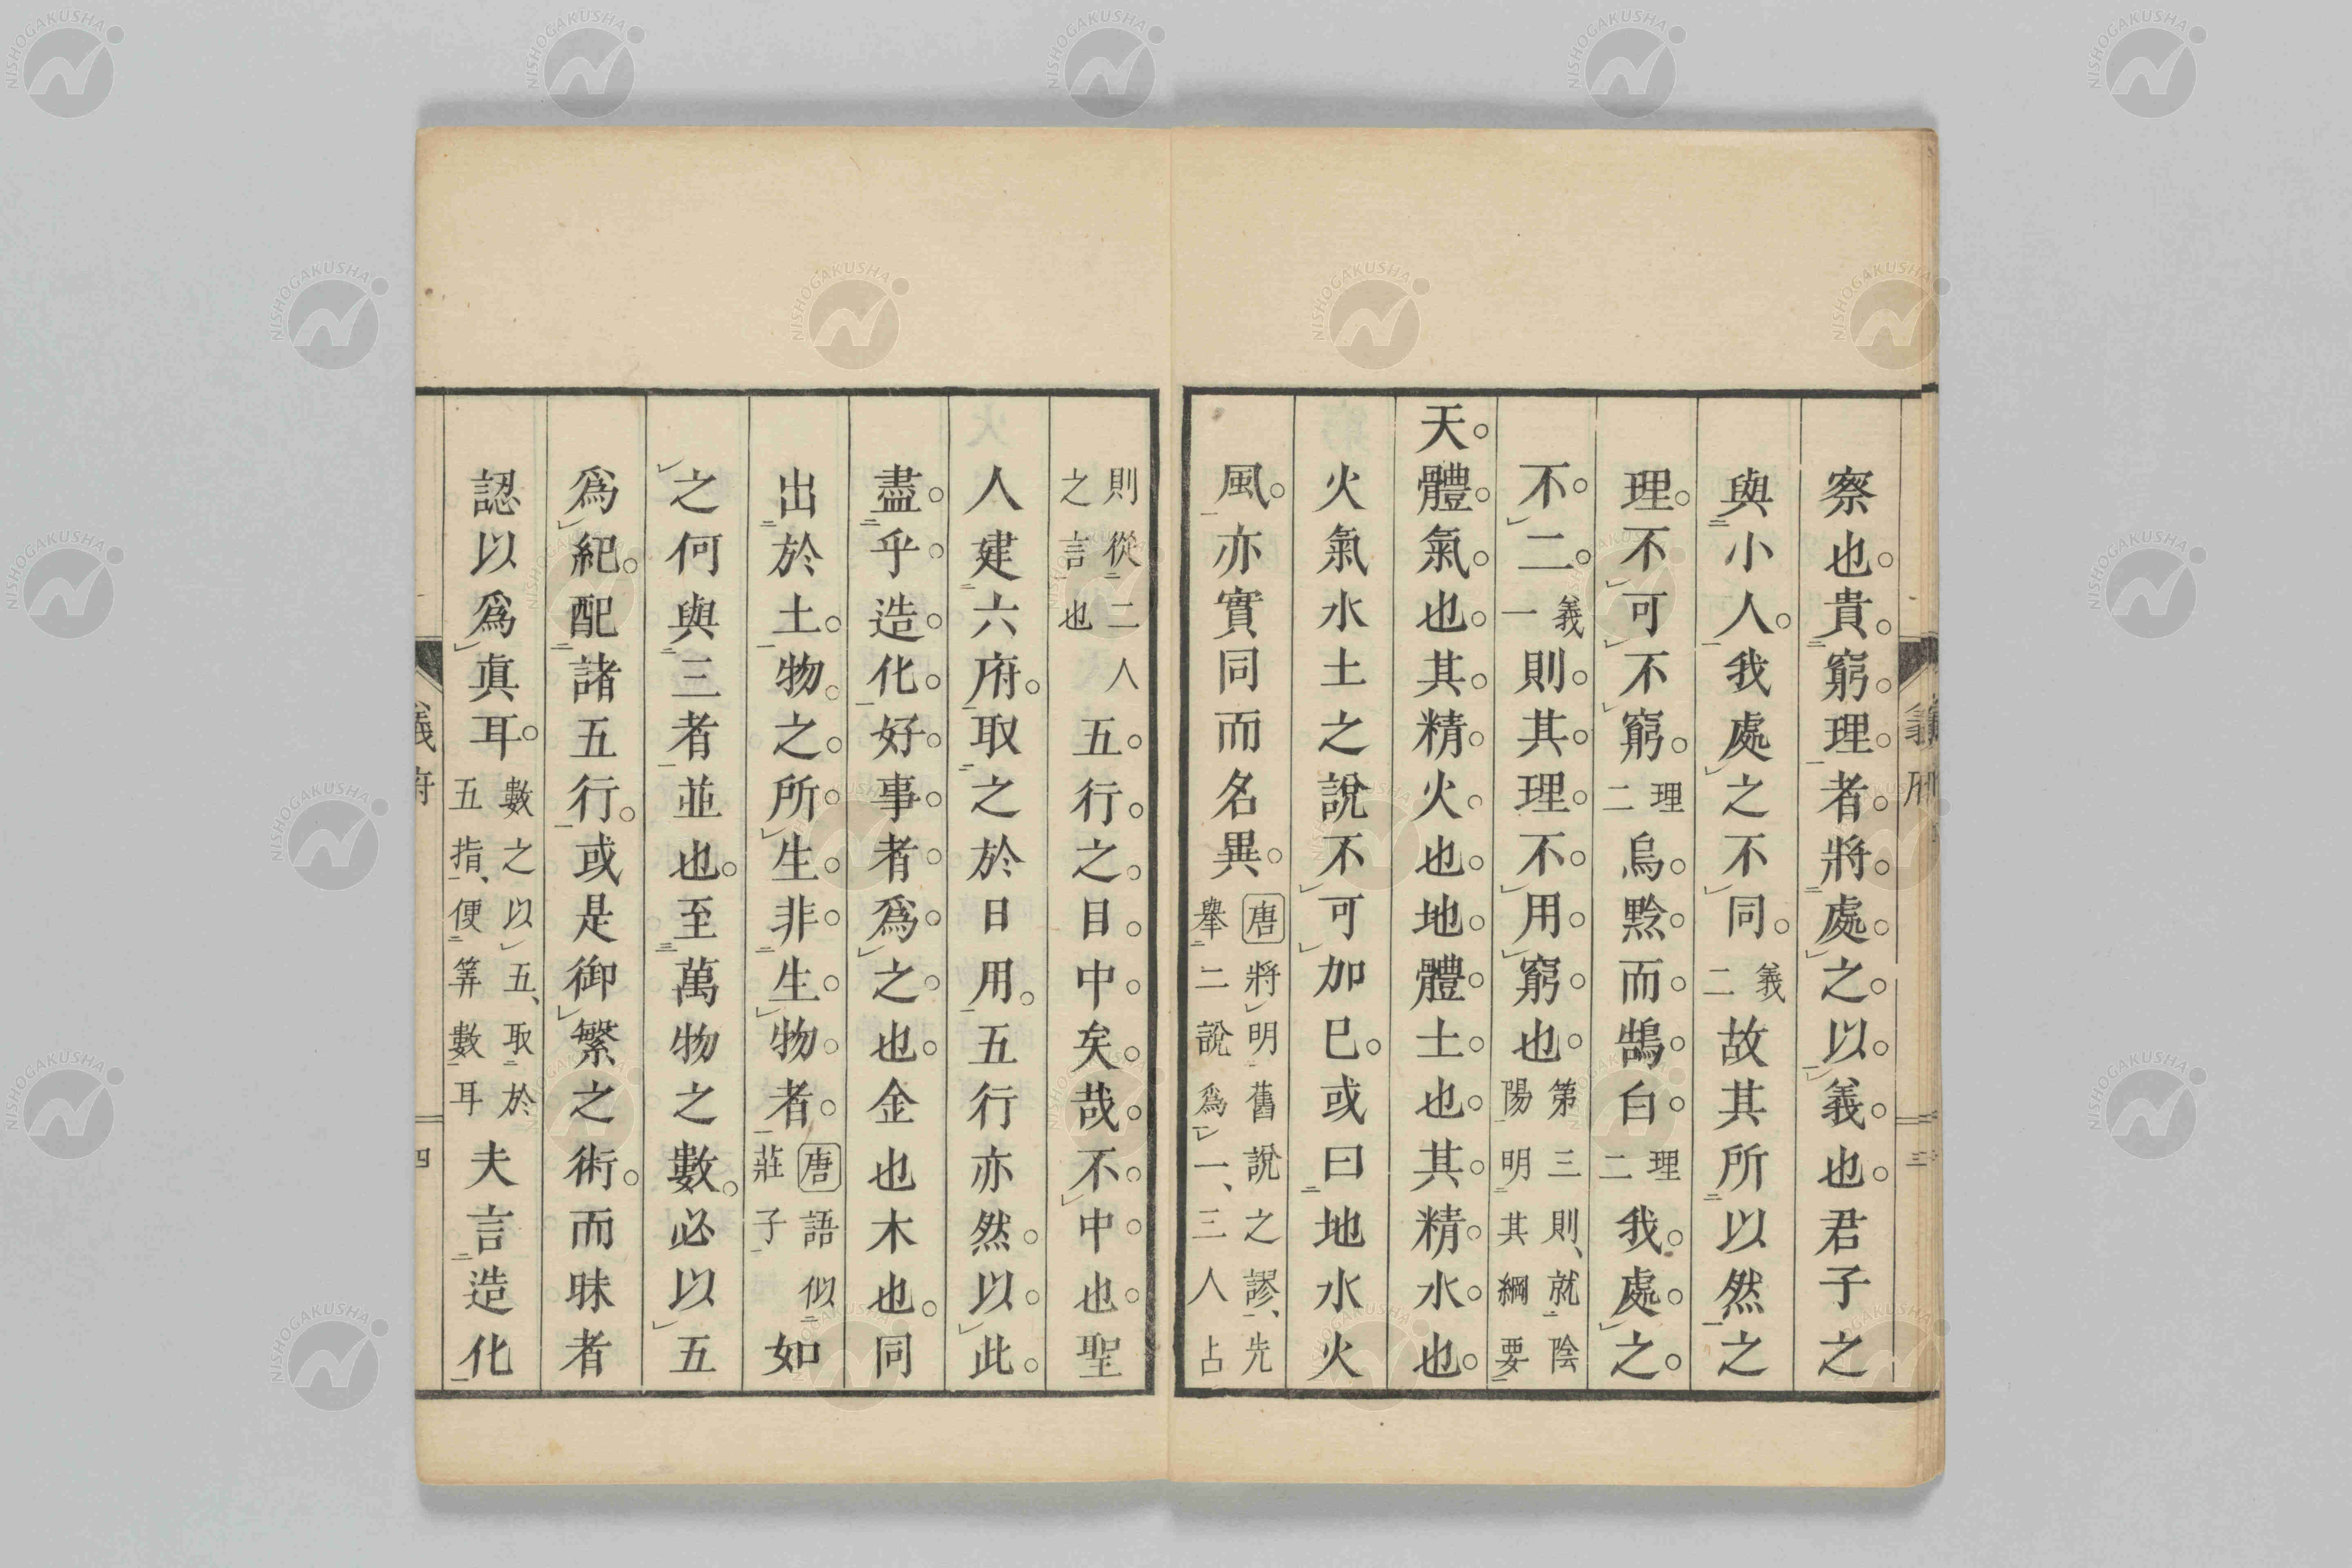 察也。貴窮理者。將處之以義也。君子之
與小人。我處之不同。義二故其所以然之
理。不可不窮。理二烏黔而鵠白。理二我處之。
不二。義一則其理不用窮也。第三則、就陰陽明其綱要
天。體氣也。其精火也。地體土也。其精水也。
火氣水土之說不可加已。或曰地水火
風。亦實同而名異。唐將明舊說之謬、先擧二說爲一、三人占
則從二人之言也五行之目中矣哉。不中也。聖
人建六府。取之於日用。五行亦然。以此
盡乎造化。好事者爲之也。金也木也。同
出於土。物之所生非生物者。唐語似莊子如
之何與三者並也。至萬物之數。必以五
爲紀。配諸五行。或是御繁之術。而昧者
認以爲眞耳。數之以五、取於五指、便筭數耳夫言造化
義府
三
義府
四
NISHOGAKUSHA